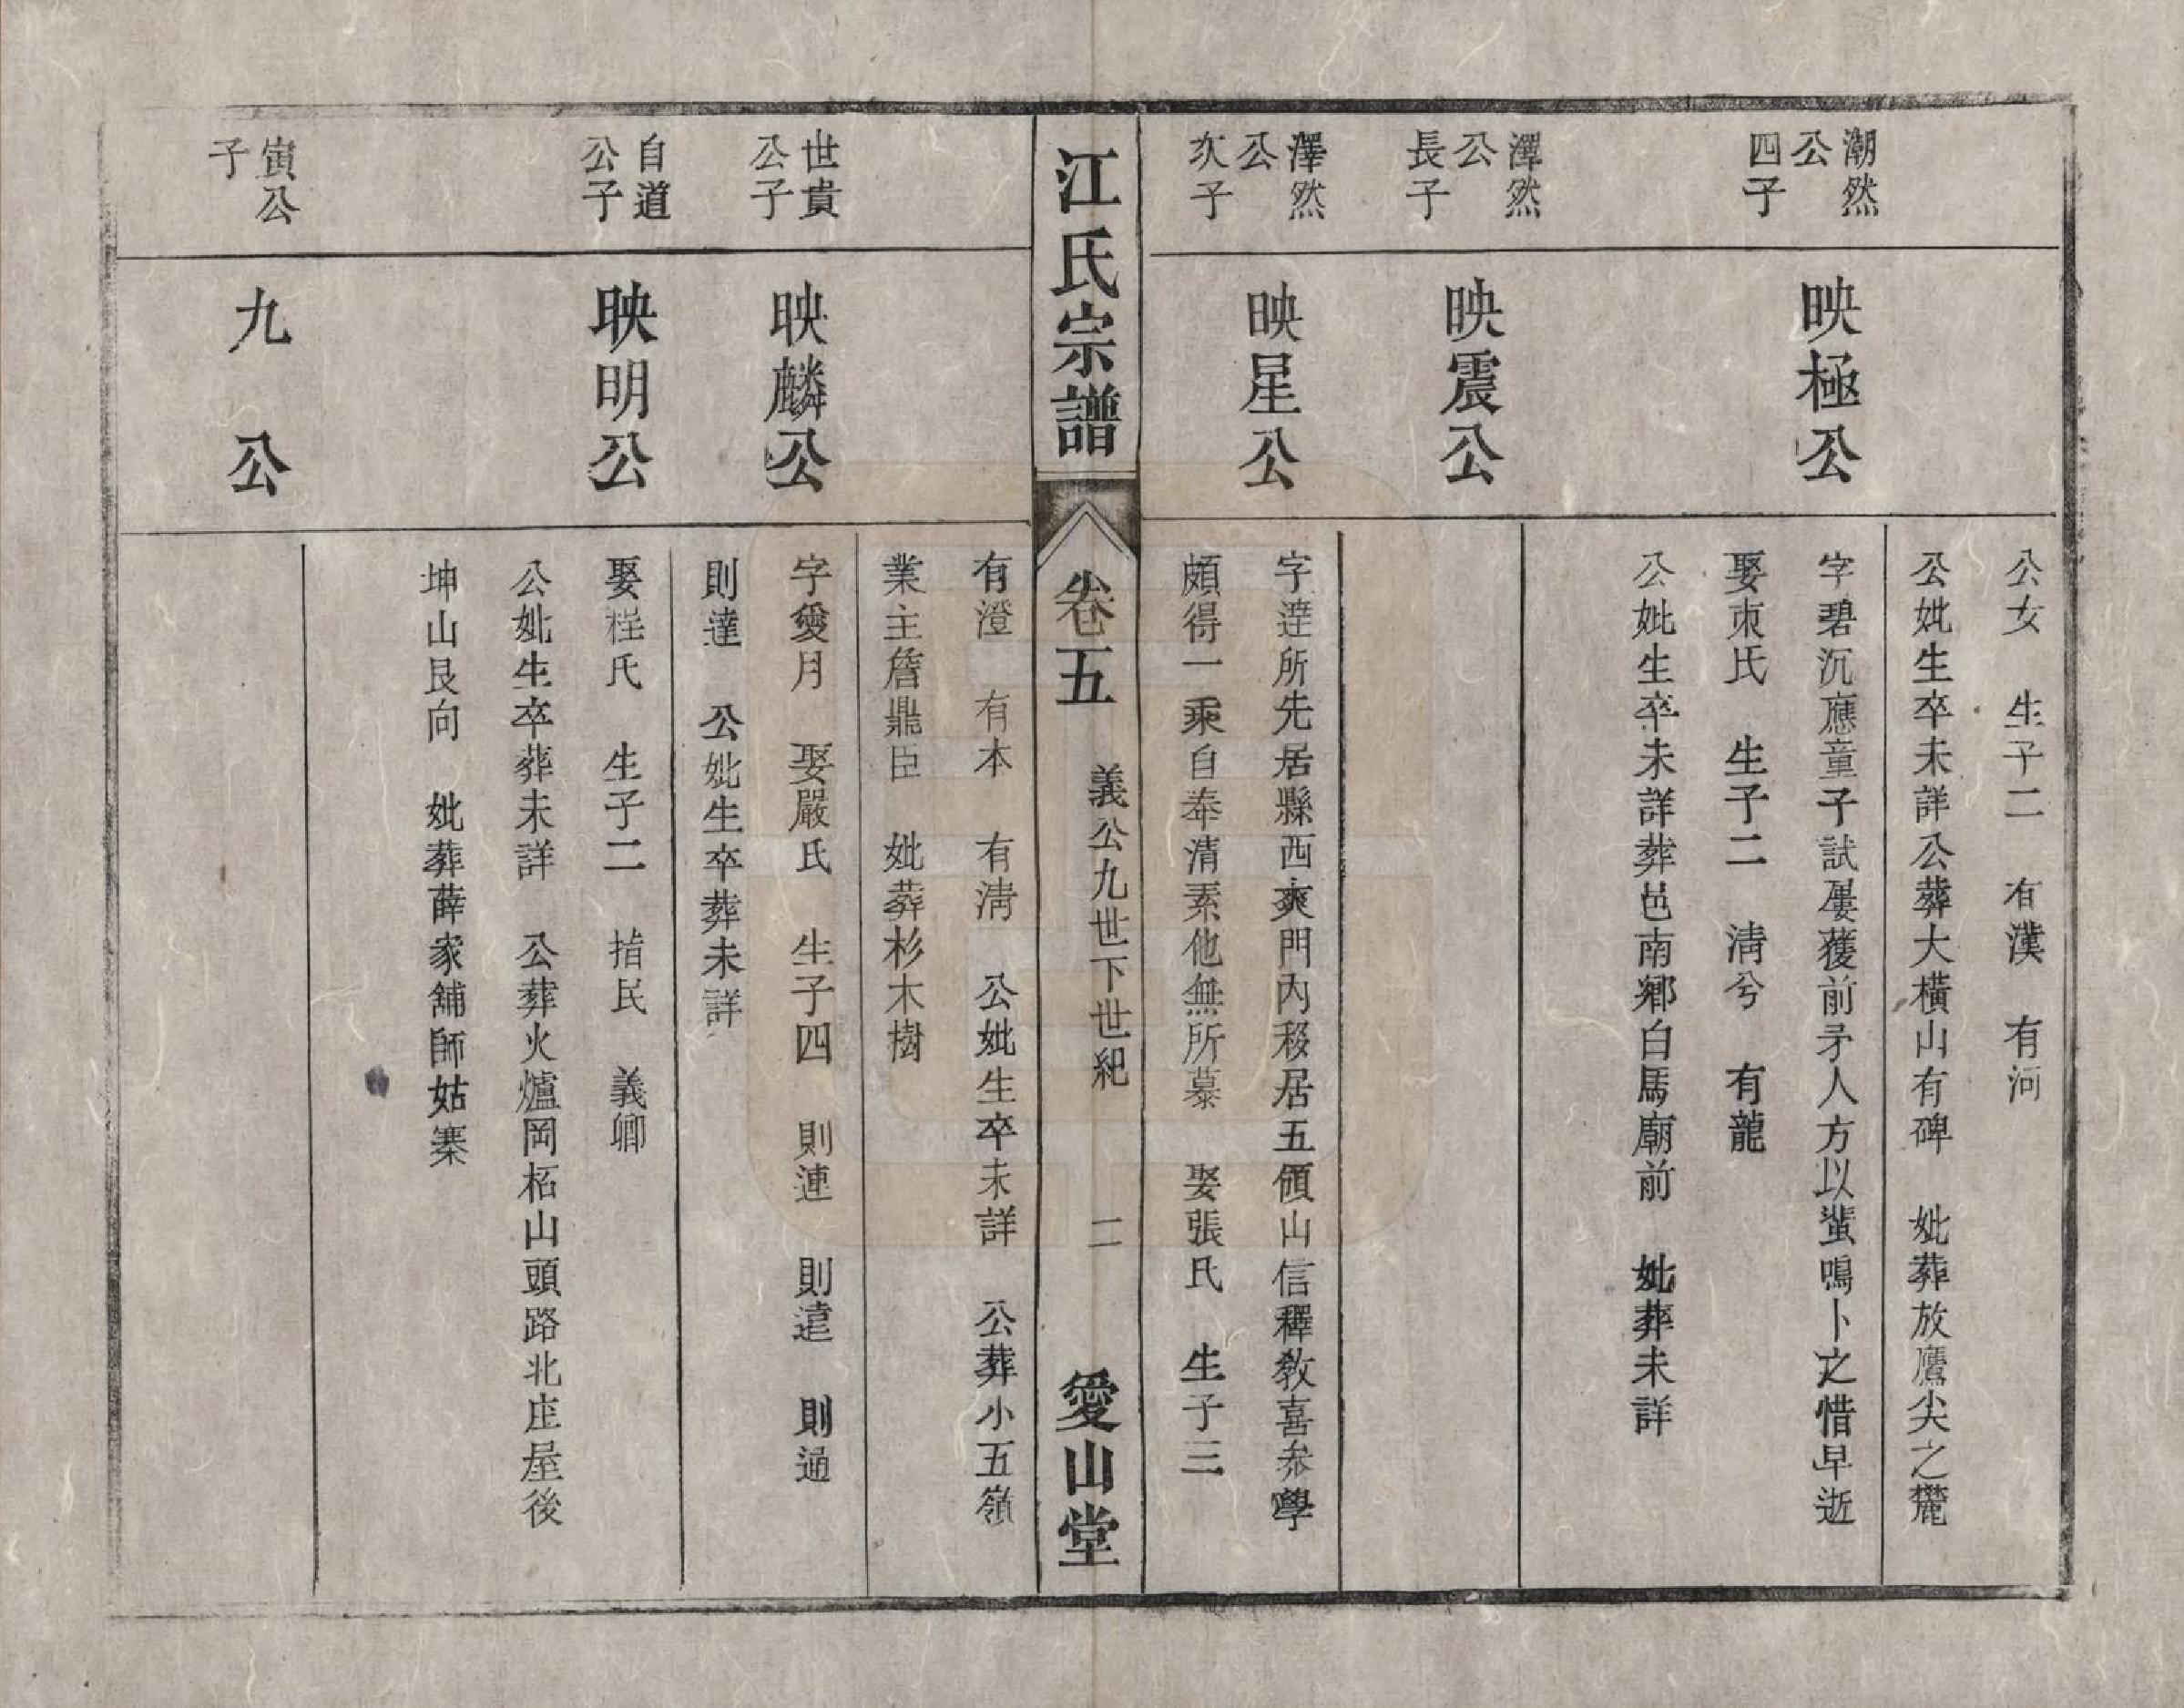 公女　生子二　有漢　有河
公妣生卒未詳公葬大橫山有碑　妣葬放鷹尖之麓
潮然
公
四子
映極公
字碧沉應童子試屢獲前矛人方以蜚鳴卜之惜早逝
娶東氏　生子二　淸兮　有龍
公妣生卒未詳葬邑南鄉白馬廟前　妣葬未詳
澤然
公
長子
映震公
澤然
公
次子
映星公
字逹所先居縣西爽門內移居五領山信釋教喜叅學
頗得一乘自奉清素他無所慕　娶張氏　生子三
江氏宗譜
卷五　義公九世下世紀　二
愛山堂
有澄　有本　有淸　公妣生卒未詳　公葬小五嶺
業主詹鼎臣　妣葬杉木樹
世貴
公子
映麟公
字愛月　娶嚴氏　生子四　則連　則遠　則通
則達　公妣生卒葬未詳
自道
公子
映明公
娶程氏　生子二　指民　義卿
公妣生卒葬未詳　公葬火爐岡柘山頭路北庄屋後
坤山艮向　妣葬薛家舖師姑寨
寅公
子
九公